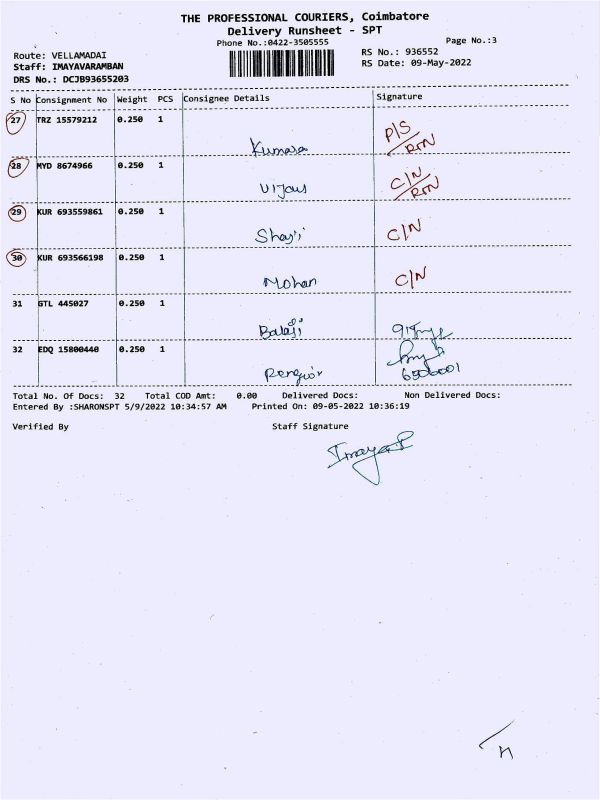 THE PROFESSIONAL COURIERS, Coimbatore
Delivery Runsheet - SPT
Phone No.:0422-3505555
Page No.:3
Route: VELLAMADAI
RS No.: 936552
Staff: IMAYAVARAMBAN
RS Date: 09-May-2022
DRS No.: DCJB93655203
S No Consignment No Weight PCS Consignee Details Signature
27 TRZ 15579212 0.250 1
Kumara P/S RTN
28 MYD 8674966 0.250 1
Vijay C/N RTN
29 KUR 693559861 0.250 1
Shaji C/N
30 KUR 693566198 0.250 1
Mohan C/N
31 GTL 445027 0.250 1
Balaji
32 EDQ 15800440 0.250 1
Total No. Of Docs: 32 Total COD Amt: 0.00 Delivered Docs: Non Delivered Docs:
Entered By :SHARONSPT 5/9/2022 10:34:57 AM Printed On: 09-05-2022 10:36:19
Verified By Staff Signature